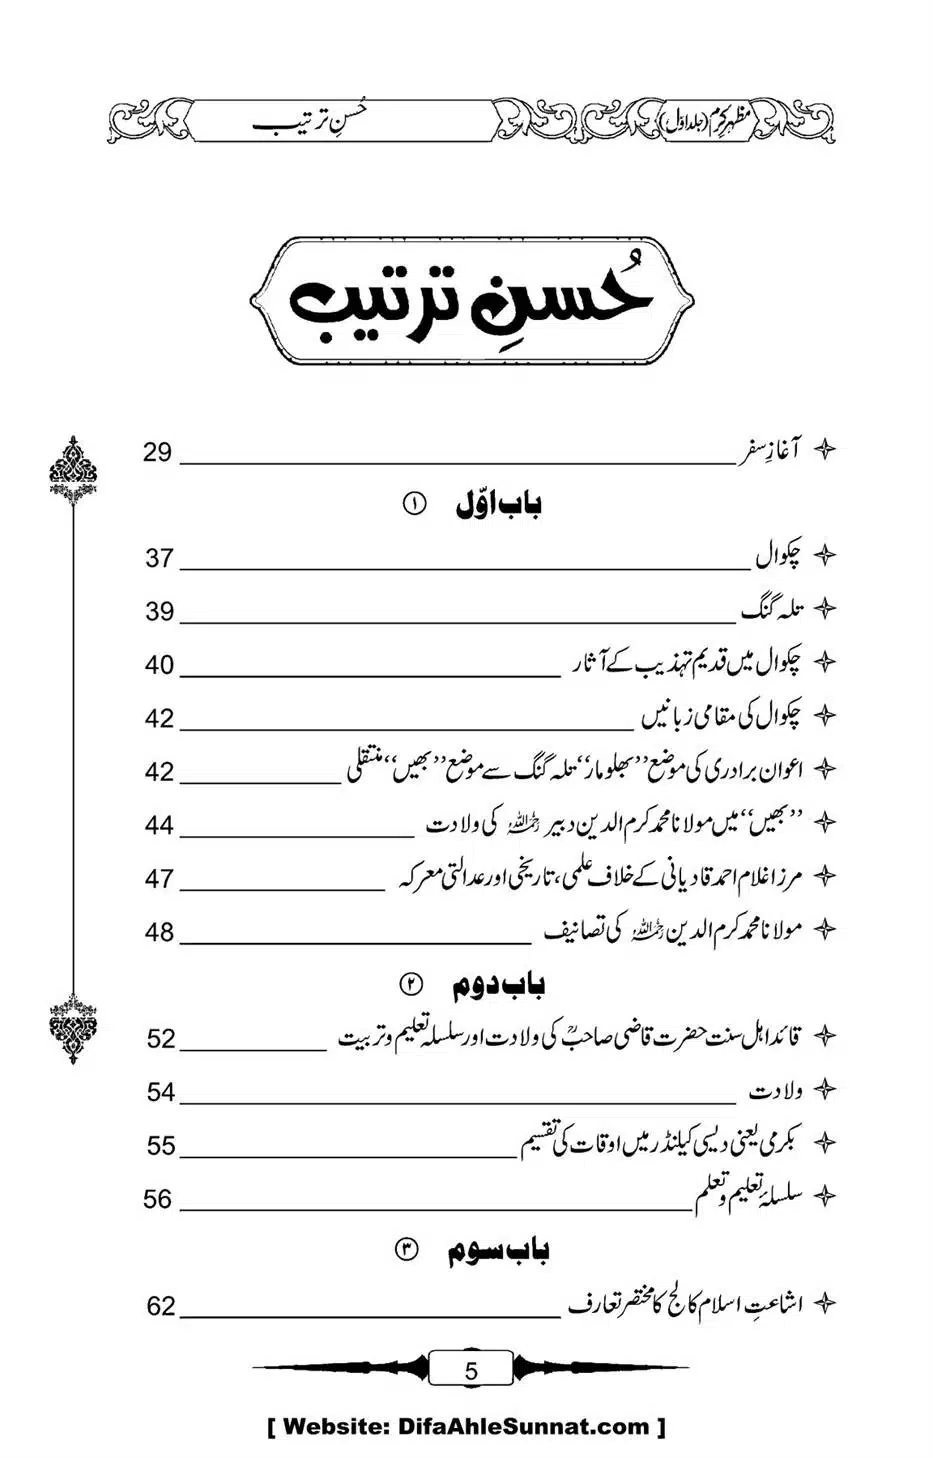 مظہرِ کرم (جلد اوّل) حُسنِ ترتیب
حُسنِ ترتیب
آغازِ سفر 29
باب اوّل ①
چکوال 37
تلہ گنگ 39
چکوال میں قدیم تہذیب کے آثار 40
چکوال کی مقامی زبانیں 42
اعوان برادری کی موضع ’’بھلومار‘‘ تلہ گنگ سے موضع ’’بھیں‘‘ منتقلی 42
’’بھیں‘‘ میں مولانا محمد کرم الدین دبیر رحمہ اللہ کی ولادت 44
مرزا غلام احمد قادیانی کے خلاف علمی، تاریخی اور عدالتی معرکہ 47
مولانا محمد کرم الدین رحمہ اللہ کی تصانیف 48
باب دوم ②
قائد اہل سنت حضرت قاضی صاحبؒ کی ولادت اور سلسلہ تعلیم و تربیت 52
ولادت 54
بکرمی یعنی دیسی کیلنڈر میں اوقات کی تقسیم 55
سلسلۂ تعلیم و تعلم 56
باب سوم ③
اشاعتِ اسلام کالج کا مختصر تعارف 62
5
[ Website: DifaAhleSunnat.com ]